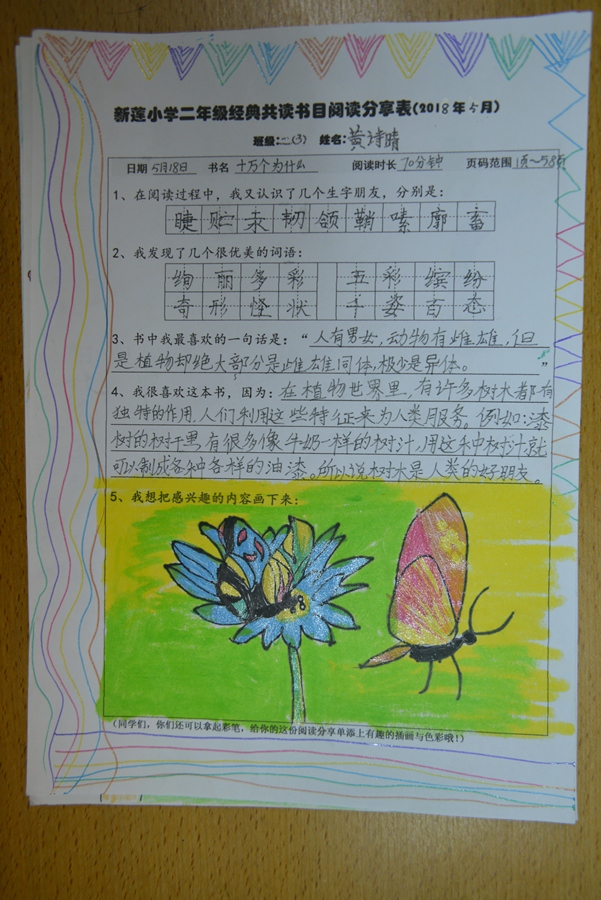 新莲小学二年级经典共读书目阅读分享表(2018年5月)
班级:二(3) 姓名:黄诗晴
日期 5月18日 书名 十万个为什么 阅读时长 70分钟 页码范围 1页~58页
1、在阅读过程中，我又认识了几个生字朋友，分别是：
睫 贮 汞 韧 颌 鞘 嗉 廓 畜
2、我发现了几个很优美的词语：
绚丽多彩 五彩缤纷
奇形怪状 千姿百态
3、书中我最喜欢的一句话是：“人有男女，动物有雌雄，但
是植物却绝大部分是雌雄同体，极少是异体。”
4、我很喜欢这本书，因为：在植物世界里，有许多树木都有
独特的作用，人们利用这些特征来为人类服务。例如：漆
树的树干里，有很多像牛奶一样的树汁，用这种树汁就
可以制成各种各样的油漆。所以说树木是人类的好朋友。
5、我想把感兴趣的内容画下来：
(同学们，你们还可以拿起彩笔，给你的这份阅读分享单添上有趣的插画与色彩哦!)